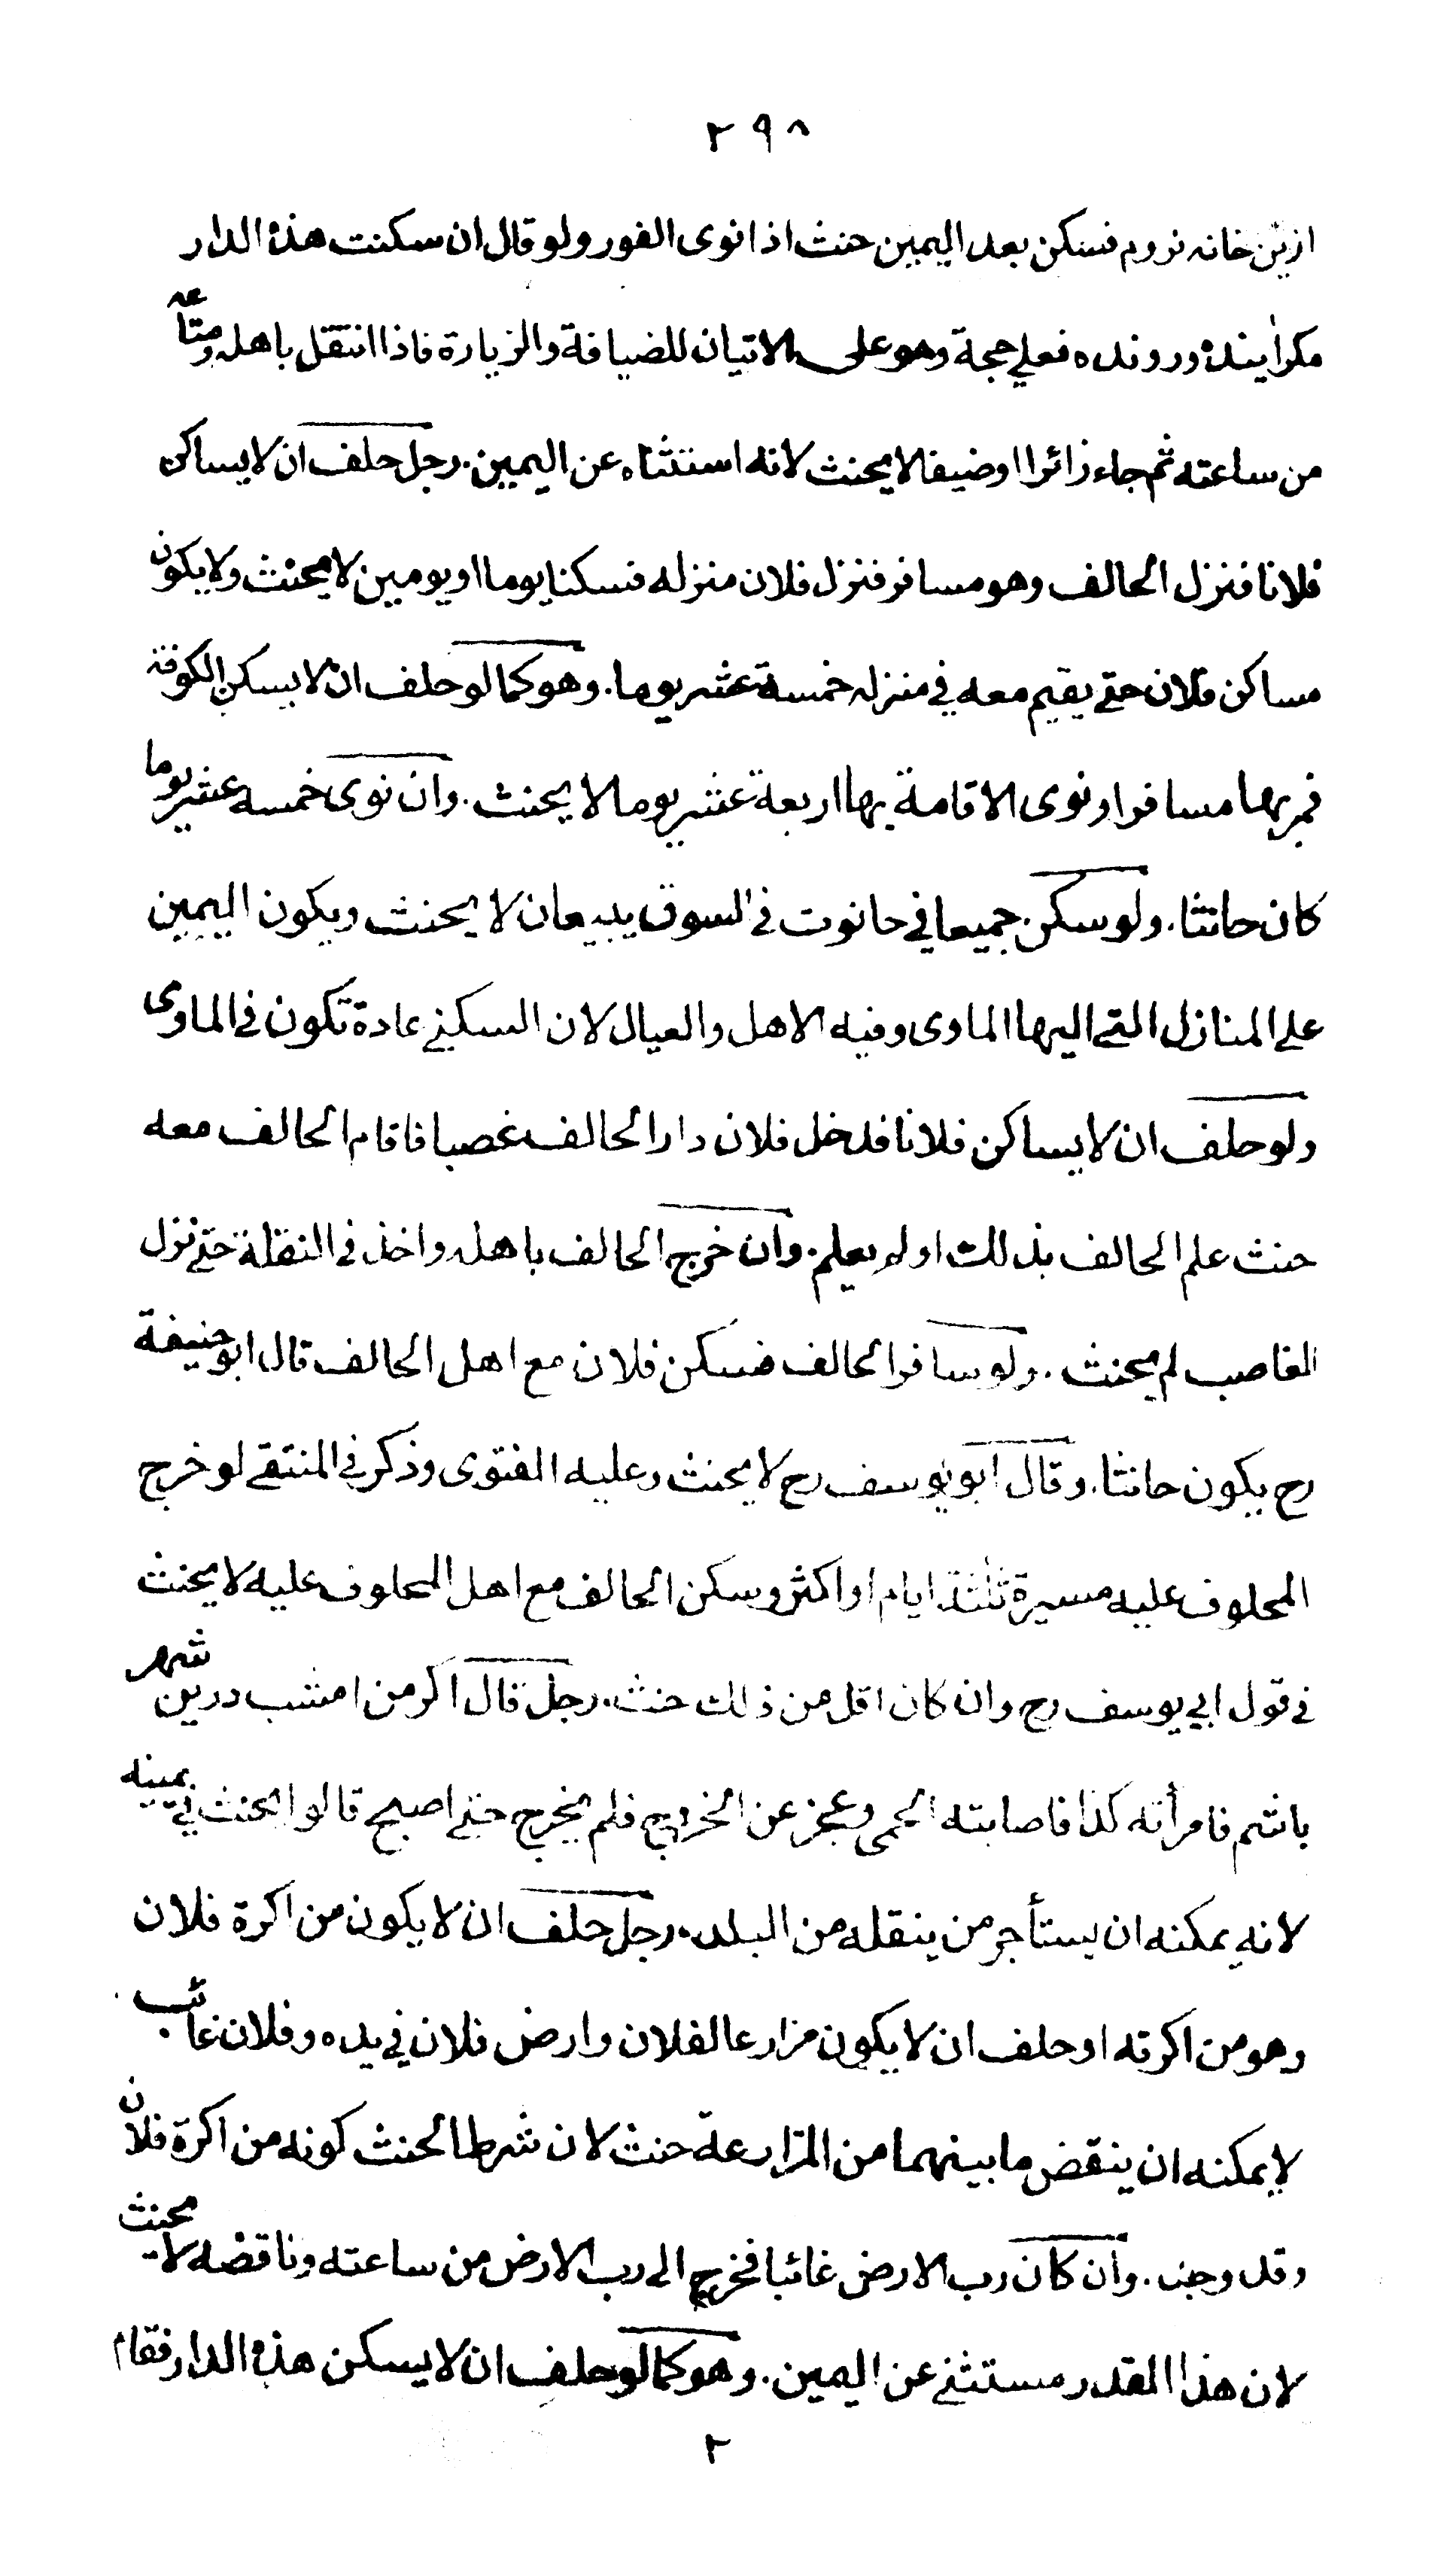 ٢٩٨
ازين خانه نروم فسكن بعد اليمين حنث اذا نوى الفور ولو قال ان سكنت هذه الدار
مكر آينده ورونده فعلي حجة وهو على الاتيان للضيافة والزيارة فاذا انتقل باهله ومتاعه
من ساعته ثم جاء زائرا اوضيفا لا يحنث لانه استثناه عن اليمين. رجل حلف ان لا يساكن
فلانا فنزل الحالف وهو مسافر فنزل فلان منزله فسكنا يوما او يومين لا يحنث ولا يكون
مساكن فلان حتى يقيم معه في منزله خمسة عشر يوما. وهو كما لو حلف ان لا يسكن الكوفة
فمر بها مسافرا ونوى الاقامة بها اربعة عشر يوما لا يحنث. وان نوى خمسة عشر يوما
كان حانثا. ولو سكن جميعا في حانوت في السوق يبيعان لا يحنث ويكون اليمين
على المنازل التي اليها الماوى وفيه الاهل والعيال لان السكنى عادة تكون في الماوى
ولو حلف ان لا يساكن فلانا فدخل فلان دار الحالف غصبا فاقام الحالف معه
حنث علم الحالف بذلك او لم يعلم. وان خرج الحالف باهله واخذ في النقلة حتى نزل
الغاصب لم يحنث. ولو سافر الحالف فسكن فلان مع اهل الحالف قال ابو حنيفة
رح يكون حانثا. وقال ابو يوسف رح لا يحنث وعليه الفتوى وذكر في المنتقى لو خرج
المحلوف عليه مسيرة ثلثة ايام او اكثر وسكن الحالف مع اهل المحلوف عليه لا يحنث
في قول ابي يوسف رح وان كان اقل من ذلك حنث. رجل قال اكر من امشب درين شهر
باشم فامرأته كذا فاصابته الحمى وعجز عن الخروج فلم يخرج حتى اصبح قالوا يحنث في يمينه
لانه يمكنه ان يستأجر من ينقله من البلد. رجل حلف ان لا يكون من اكرة فلان
وهو من اكرته او حلف ان لا يكون مزارعا لفلان وارض فلان في يده وفلان غائب
لا يمكنه ان ينقض ما بينهما من المزارعة حنث لان شرط الحنث كونه من اكرة فلان
وقد وجد. وان كان رب الارض غائبا فخرج الى رب الارض من ساعته وناقضه لا يحنث
لان هذا القدر مستثنى عن اليمين. وهو كما لو حلف ان لا يسكن هذه الدار فقام
٢